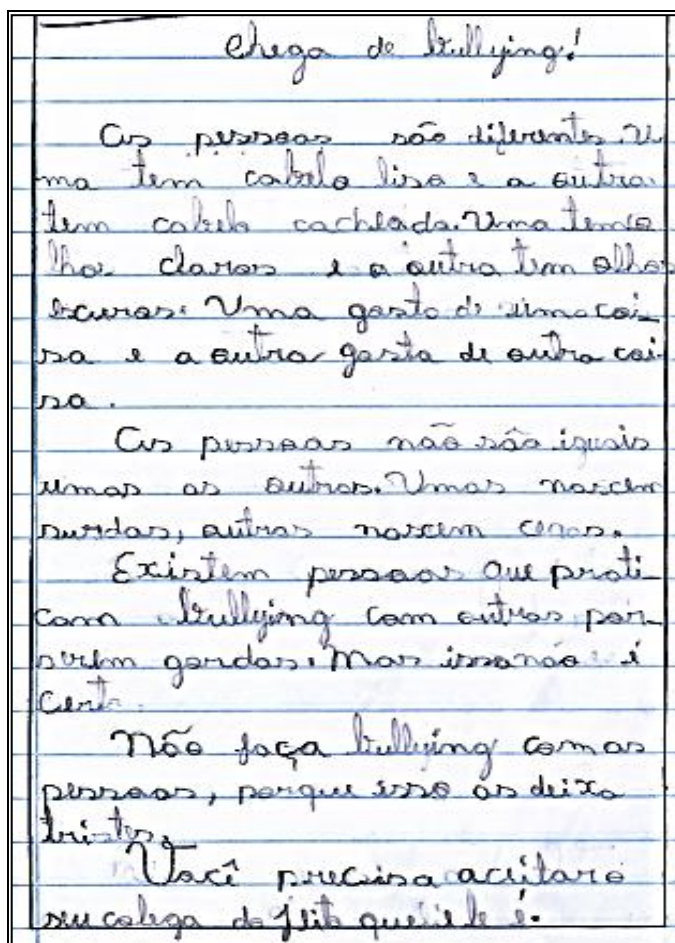 Chega de bullying!
As pessoas são diferentes. U
ma tem cabelo liso e a outra
tem cabelo cacheado. Uma tem o
lhos claros e a outra tem olhos
escuros. Uma gosta de uma coi_
sa e a outra gosta de outra coi-
sa.
As pessoas não são iguais
umas as outras. Umas nascem
surdas, outras nascem cegas.
Existem pessoas que prati_
cam bullying com outras por_
serem gordas. Mas isso não é
certo.
Não faça bullying com as
pessoas, porque isso as deixa
tristes.
Você precisa aceitar o
seu colega do jeito que ele é.